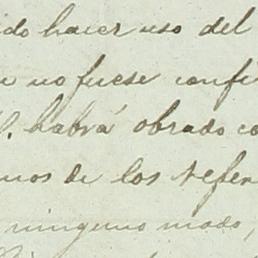 ido hacer uso del
no fuese confi
V. habrá obrado co
mos de los refer
ninguno modo,